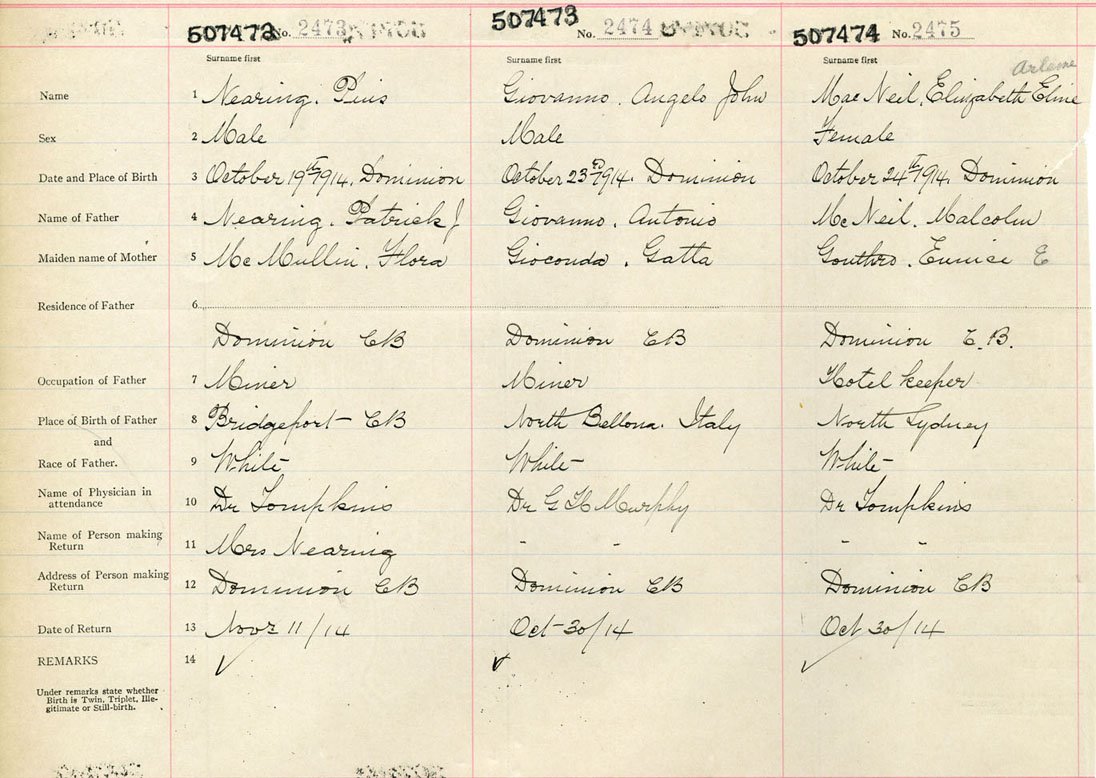 507472 No. 2473 507473 No. 2474 507474 No. 2475
Surname first Surname first Surname first
Arlene
Name 1 Nearing. Pius Giovanno. Angelo John Mac Neil. Elizabeth Eline
Sex 2 Male Male Female
Date and Place of Birth 3 October 19th 1914. Dominion October 23rd 1914. Dominion October 24th 1914. Dominion
Name of Father 4 Nearing. Patrick J Giovanno. Antonio Mc Neil. Malcolm
Maiden name of Mother 5 Mc Mullin. Flora Gioconda. Gatta Gouthro. Eunice E
Residence of Father 6
Dominion CB Dominion CB Dominion C.B.
Occupation of Father 7 Miner Miner Hotel keeper
Place of Birth of Father 8 Bridgeport - CB North Bellona. Italy North Sydney
and
Race of Father. 9 White White White
Name of Physician in
attendance 10 Dr Tompkins Dr G H Murphy Dr Tompkins
Name of Person making
Return 11 Mrs Nearing - - - -
Address of Person making
Return 12 Dominion CB Dominion CB Dominion CB
Date of Return 13 Novr 11/14 Oct 30/14 Oct 30/14
REMARKS 14 ✓ ✓ ✓
Under remarks state whether
Birth is Twin, Triplet, Ille-
gitimate or Still-birth.